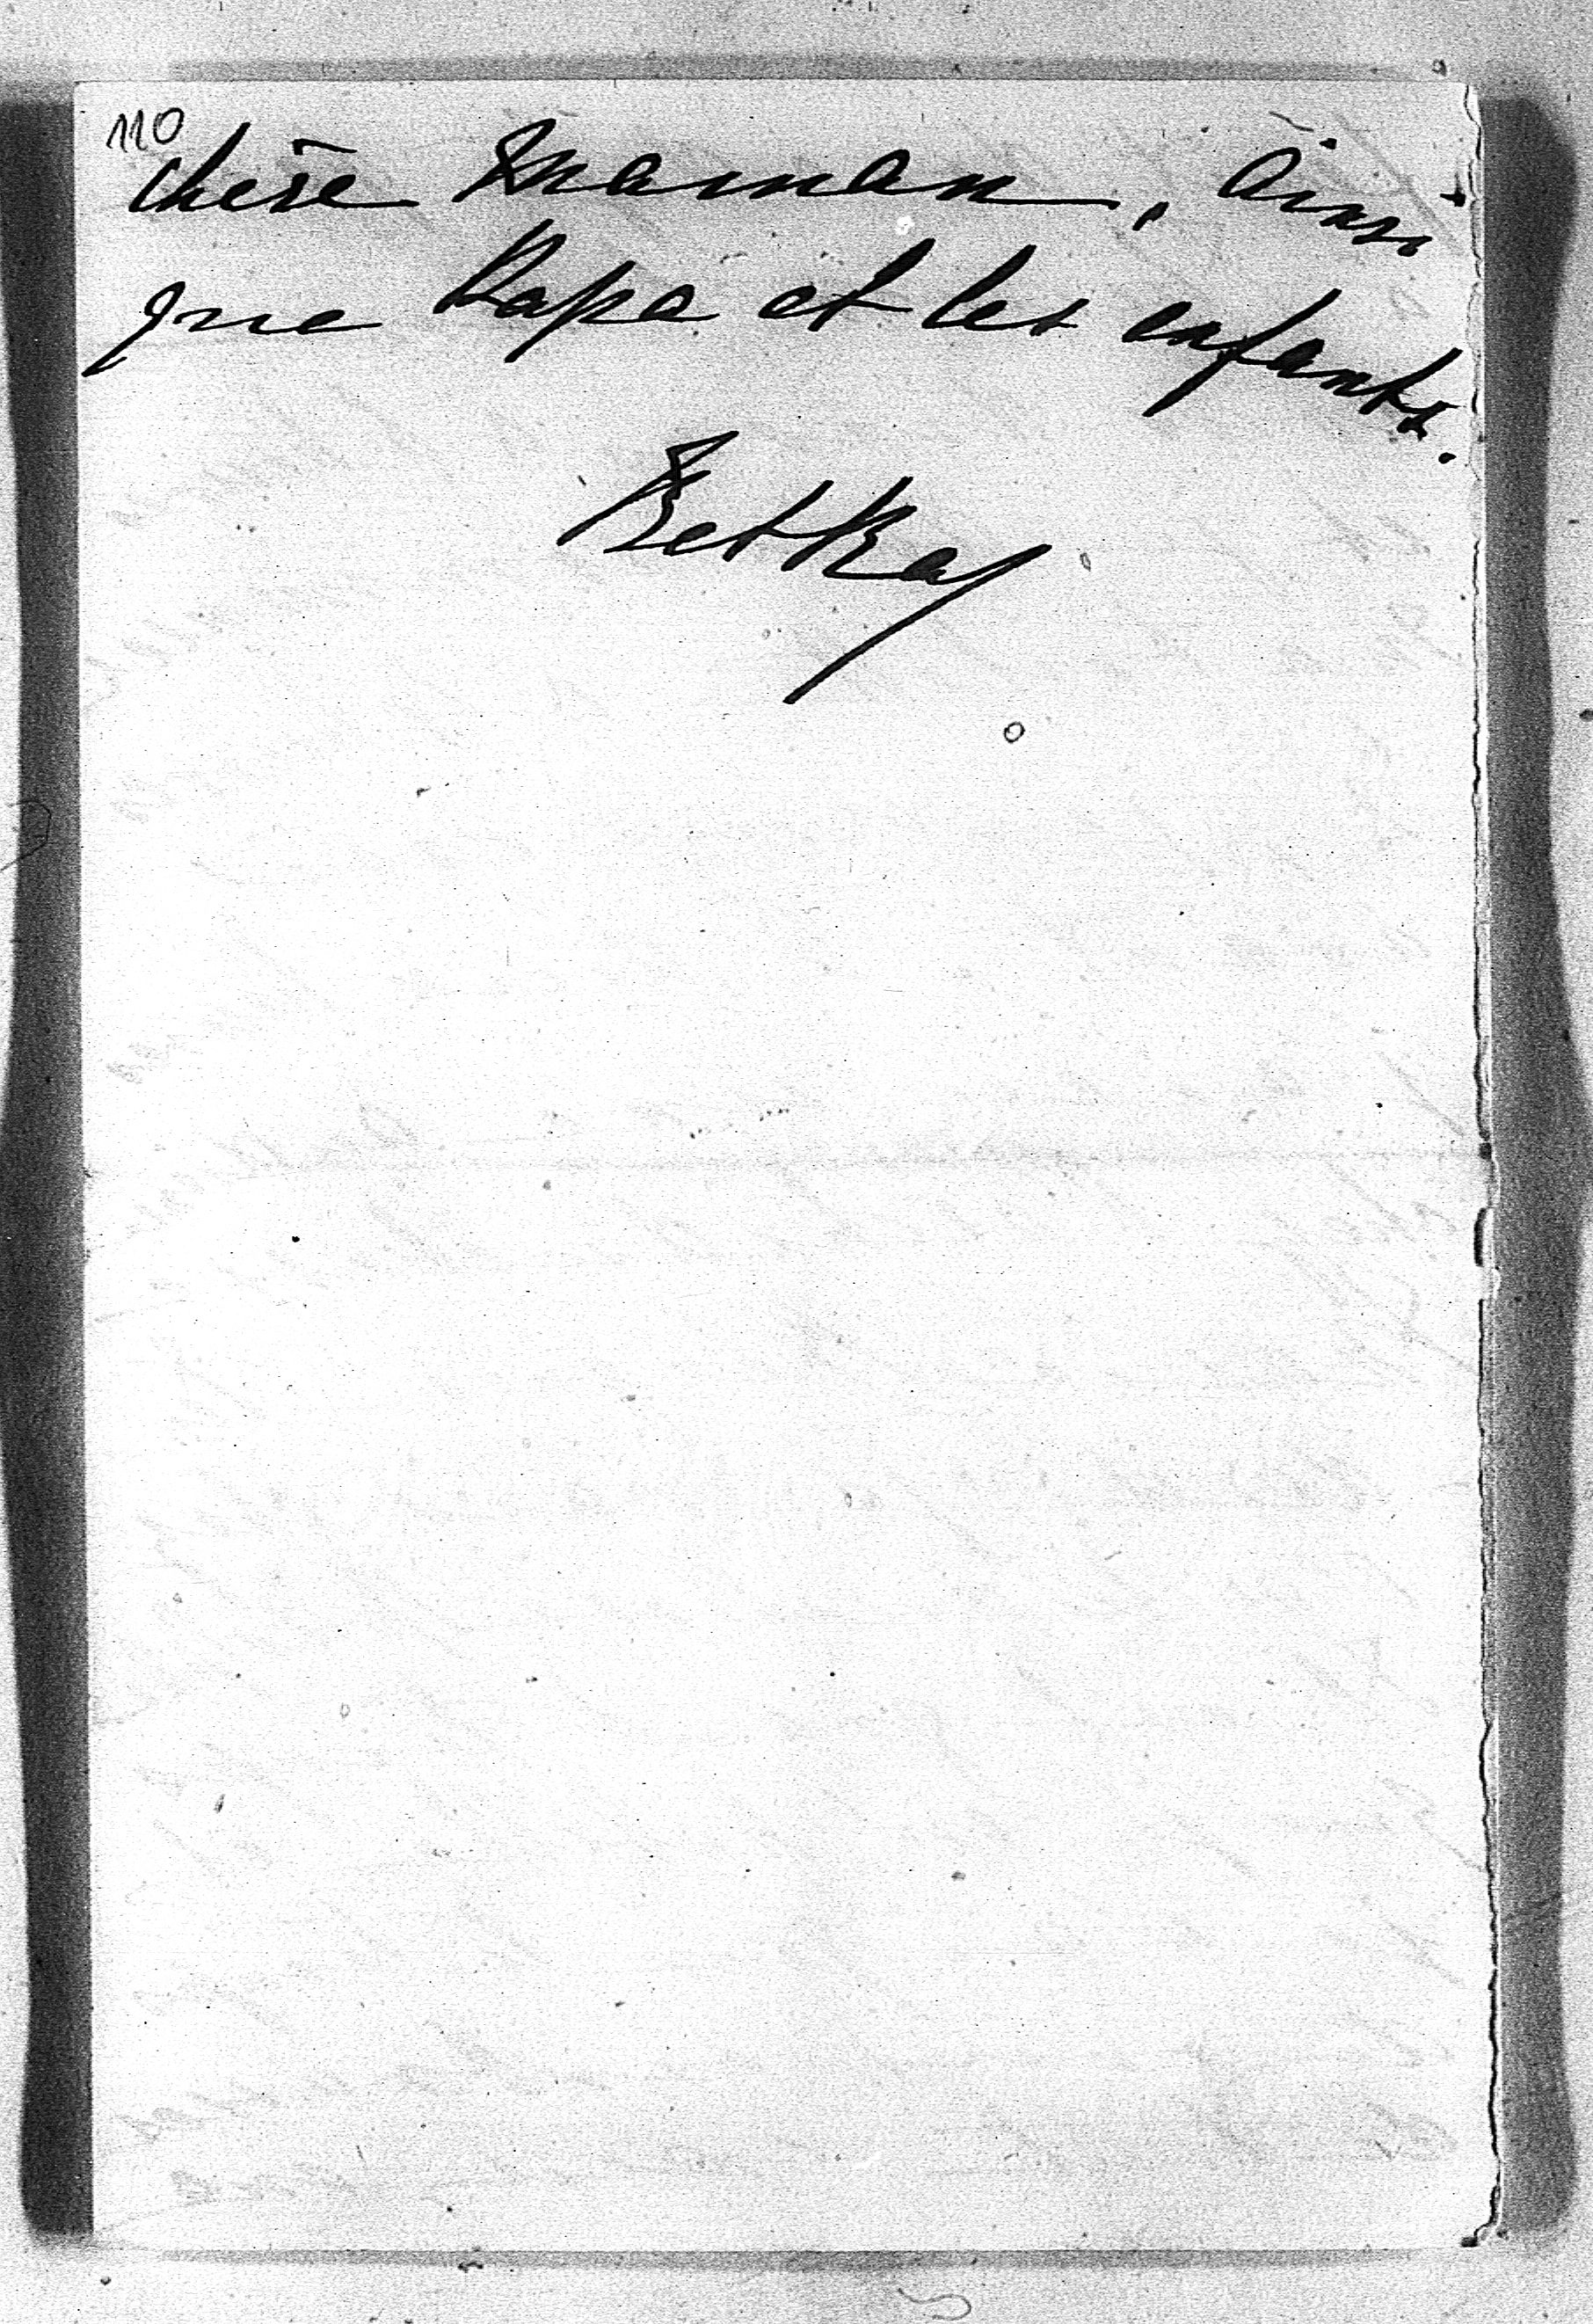 110
chère Maman, ainsi
que Papa et les enfants.